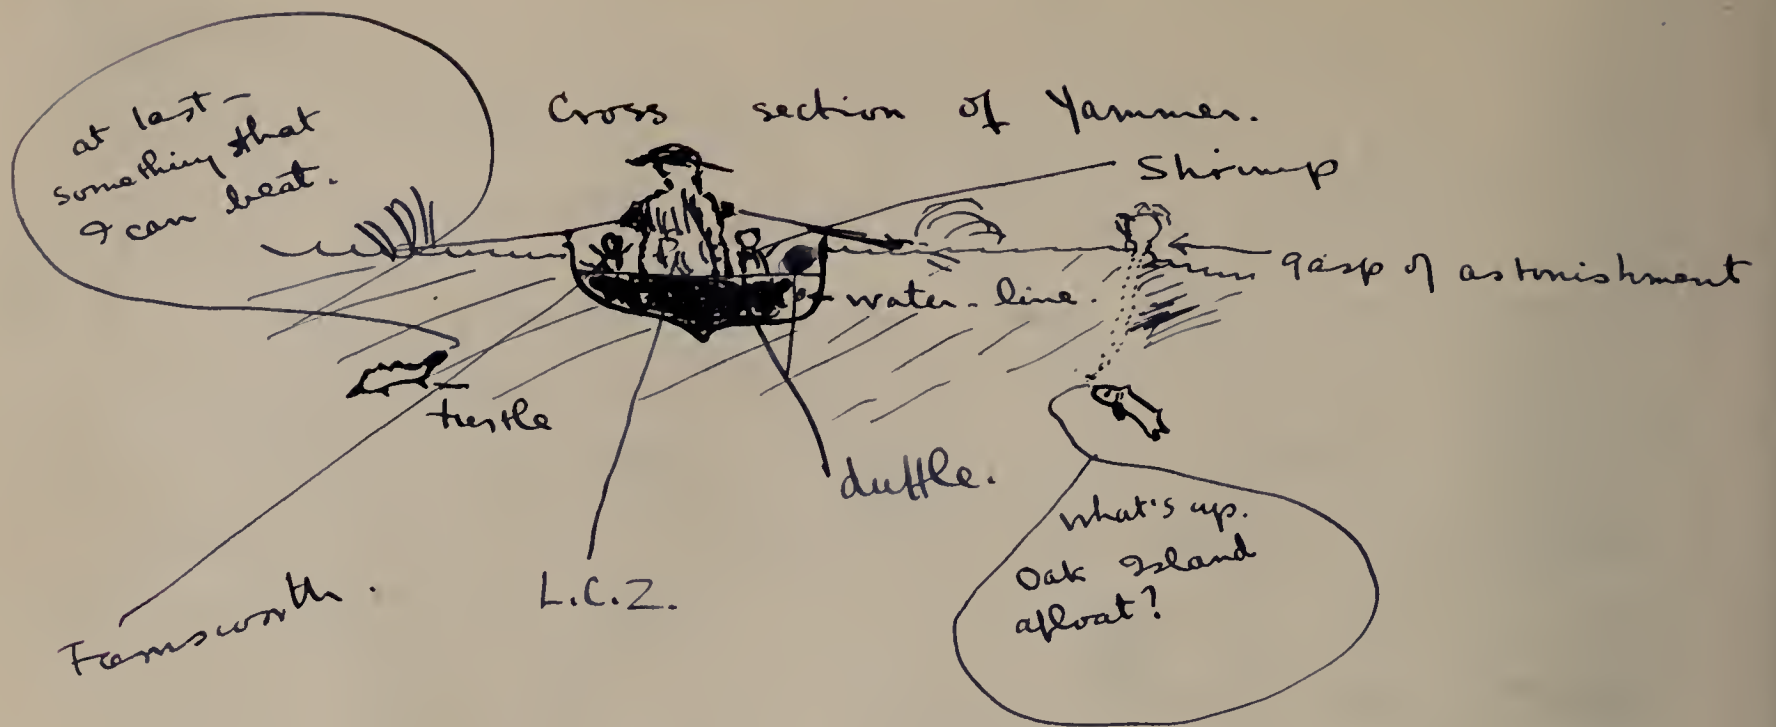 at last -
something that
I can beat.
Cross section of Yammer.
Shrimp
gasp of astonishment
water-line.
turtle
duffle.
L.C.Z.
Farnsworth.
What's up.
Oak Island
afloat?